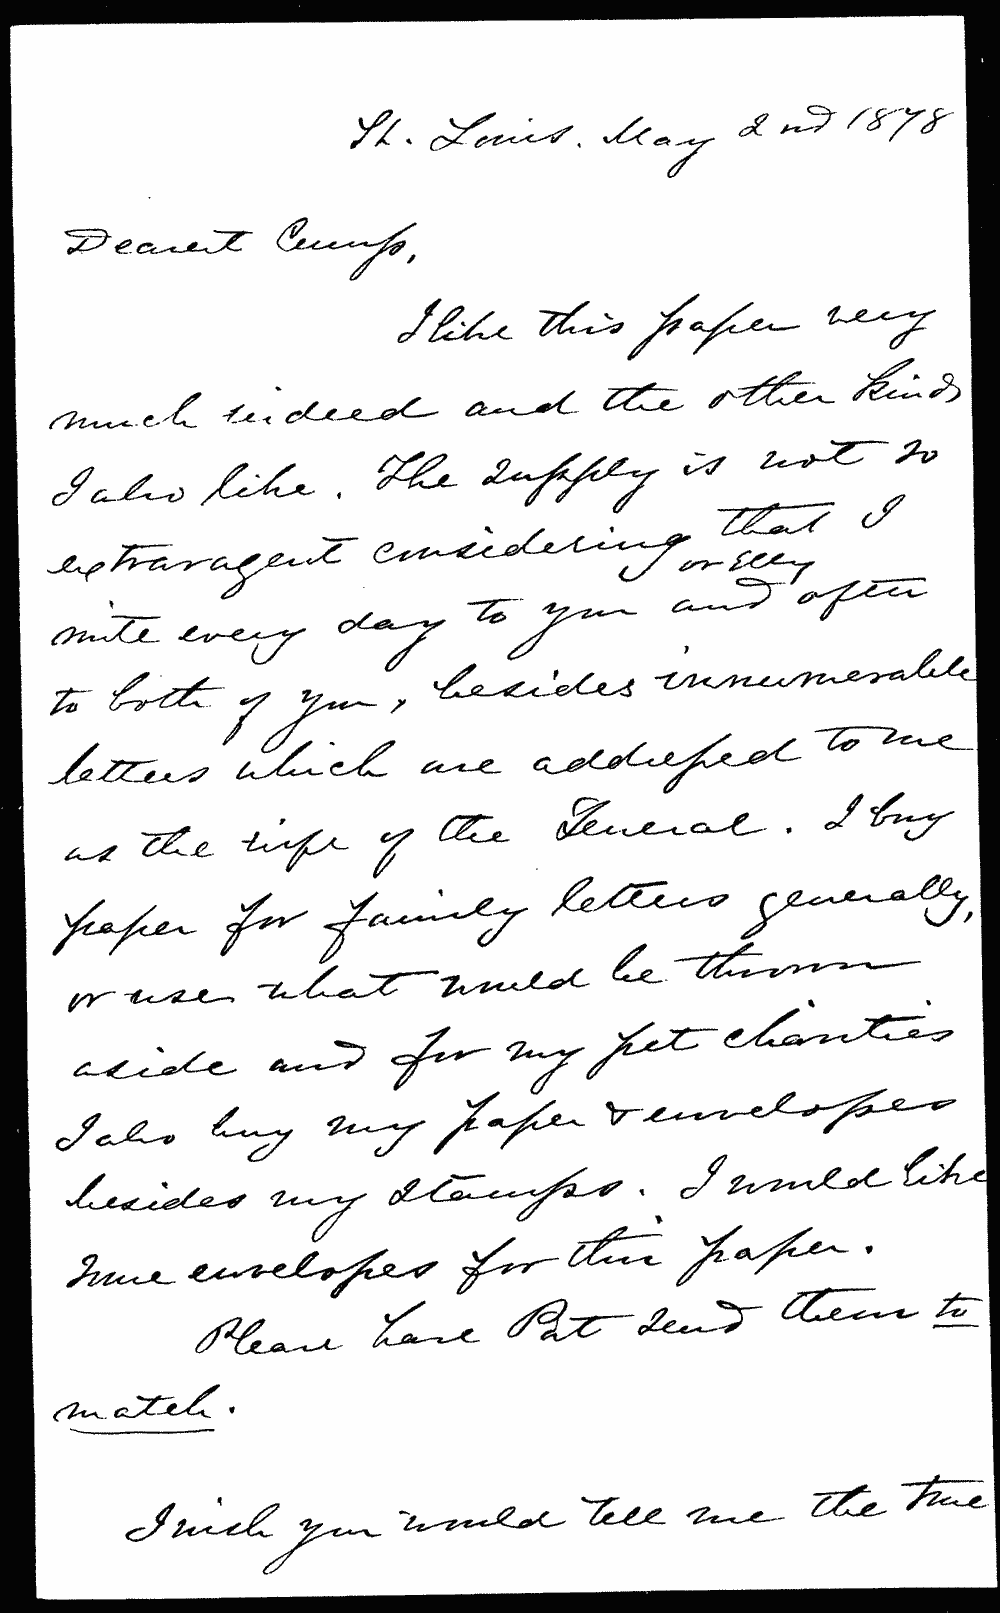 St. Louis. May 2nd 1878
Dearest Cump,
I like this paper very
much indeed and the other kinds
I also like. The supply is not so
extravagent considering that I
or Elly
write every day to you and often
to both of you, besides innumerable
letters which are addressed to me
as the wife of the General. I buy
paper for family letters generally,
or use what would be thrown
aside and for my pet charities
I also buy my paper & envelopes
besides my stamps. I would like
some envelopes for this paper.
Please have Pat send them to
match.
I wish you would tell me the true